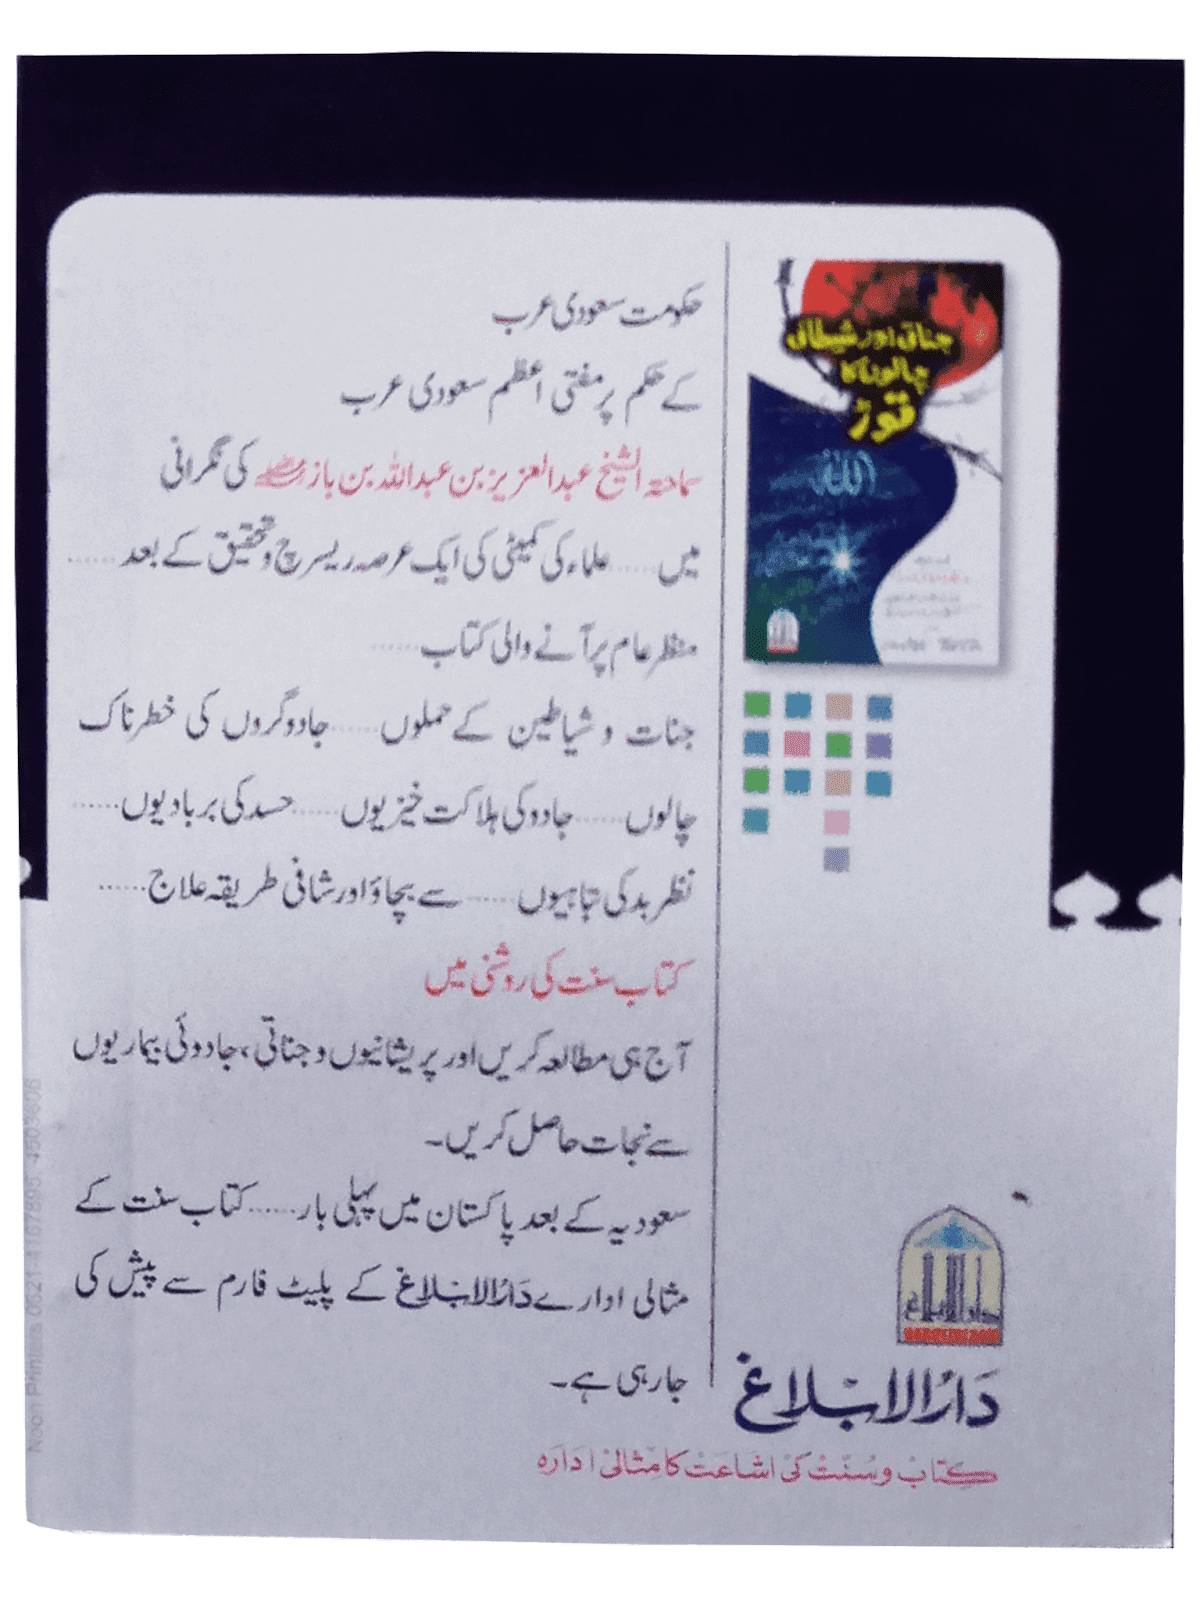 حکومت سعودی عرب
کے حکم پر مفتی اعظم سعودی عرب
سماحتہ الشیخ عبدالعزیز بن عبداللہ بن باز رحمہ اللہ کی نگرانی
میں ...... علماء کی کمیٹی کی ایک عرصہ ریسرچ و تحقیق کے بعد ......
منظر عام پر آنے والی کتاب ......
جنات و شیاطین کے حملوں ...... جادوگروں کی خطرناک
چالوں ...... جادو کی ہلاکت خیزیوں ...... حسد کی بربادیوں ......
نظر بد کی تباہیوں ...... سے بچاؤ اور شافی طریقہ علاج ......
کتاب سنت کی روشنی میں
آج ہی مطالعہ کریں اور پریشانیوں و جناتی، جادوئی بیماریوں
سے نجات حاصل کریں۔
سعودیہ کے بعد پاکستان میں پہلی بار ...... کتاب سنت کے
مثالی ادارے دَارُالابلاغ کے پلیٹ فارم سے پیش کی
جا رہی ہے۔
جناتی اور شیطانی
چالوں کا
توڑ
اللہ
دارالابلاغ
دَارُالابلاغ
کتاب و سنت کی اشاعت کا مثالی ادارہ
Noon Printers 0321 4167895 4503606